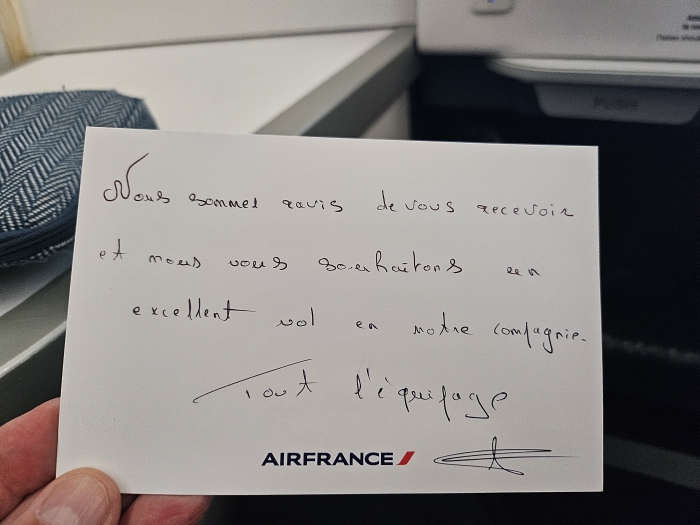 Nous sommes ravis de vous recevoir
et nous vous souhaitons un
excellent vol en notre compagnie.
Tout l'équipage
AIRFRANCE
PUSH